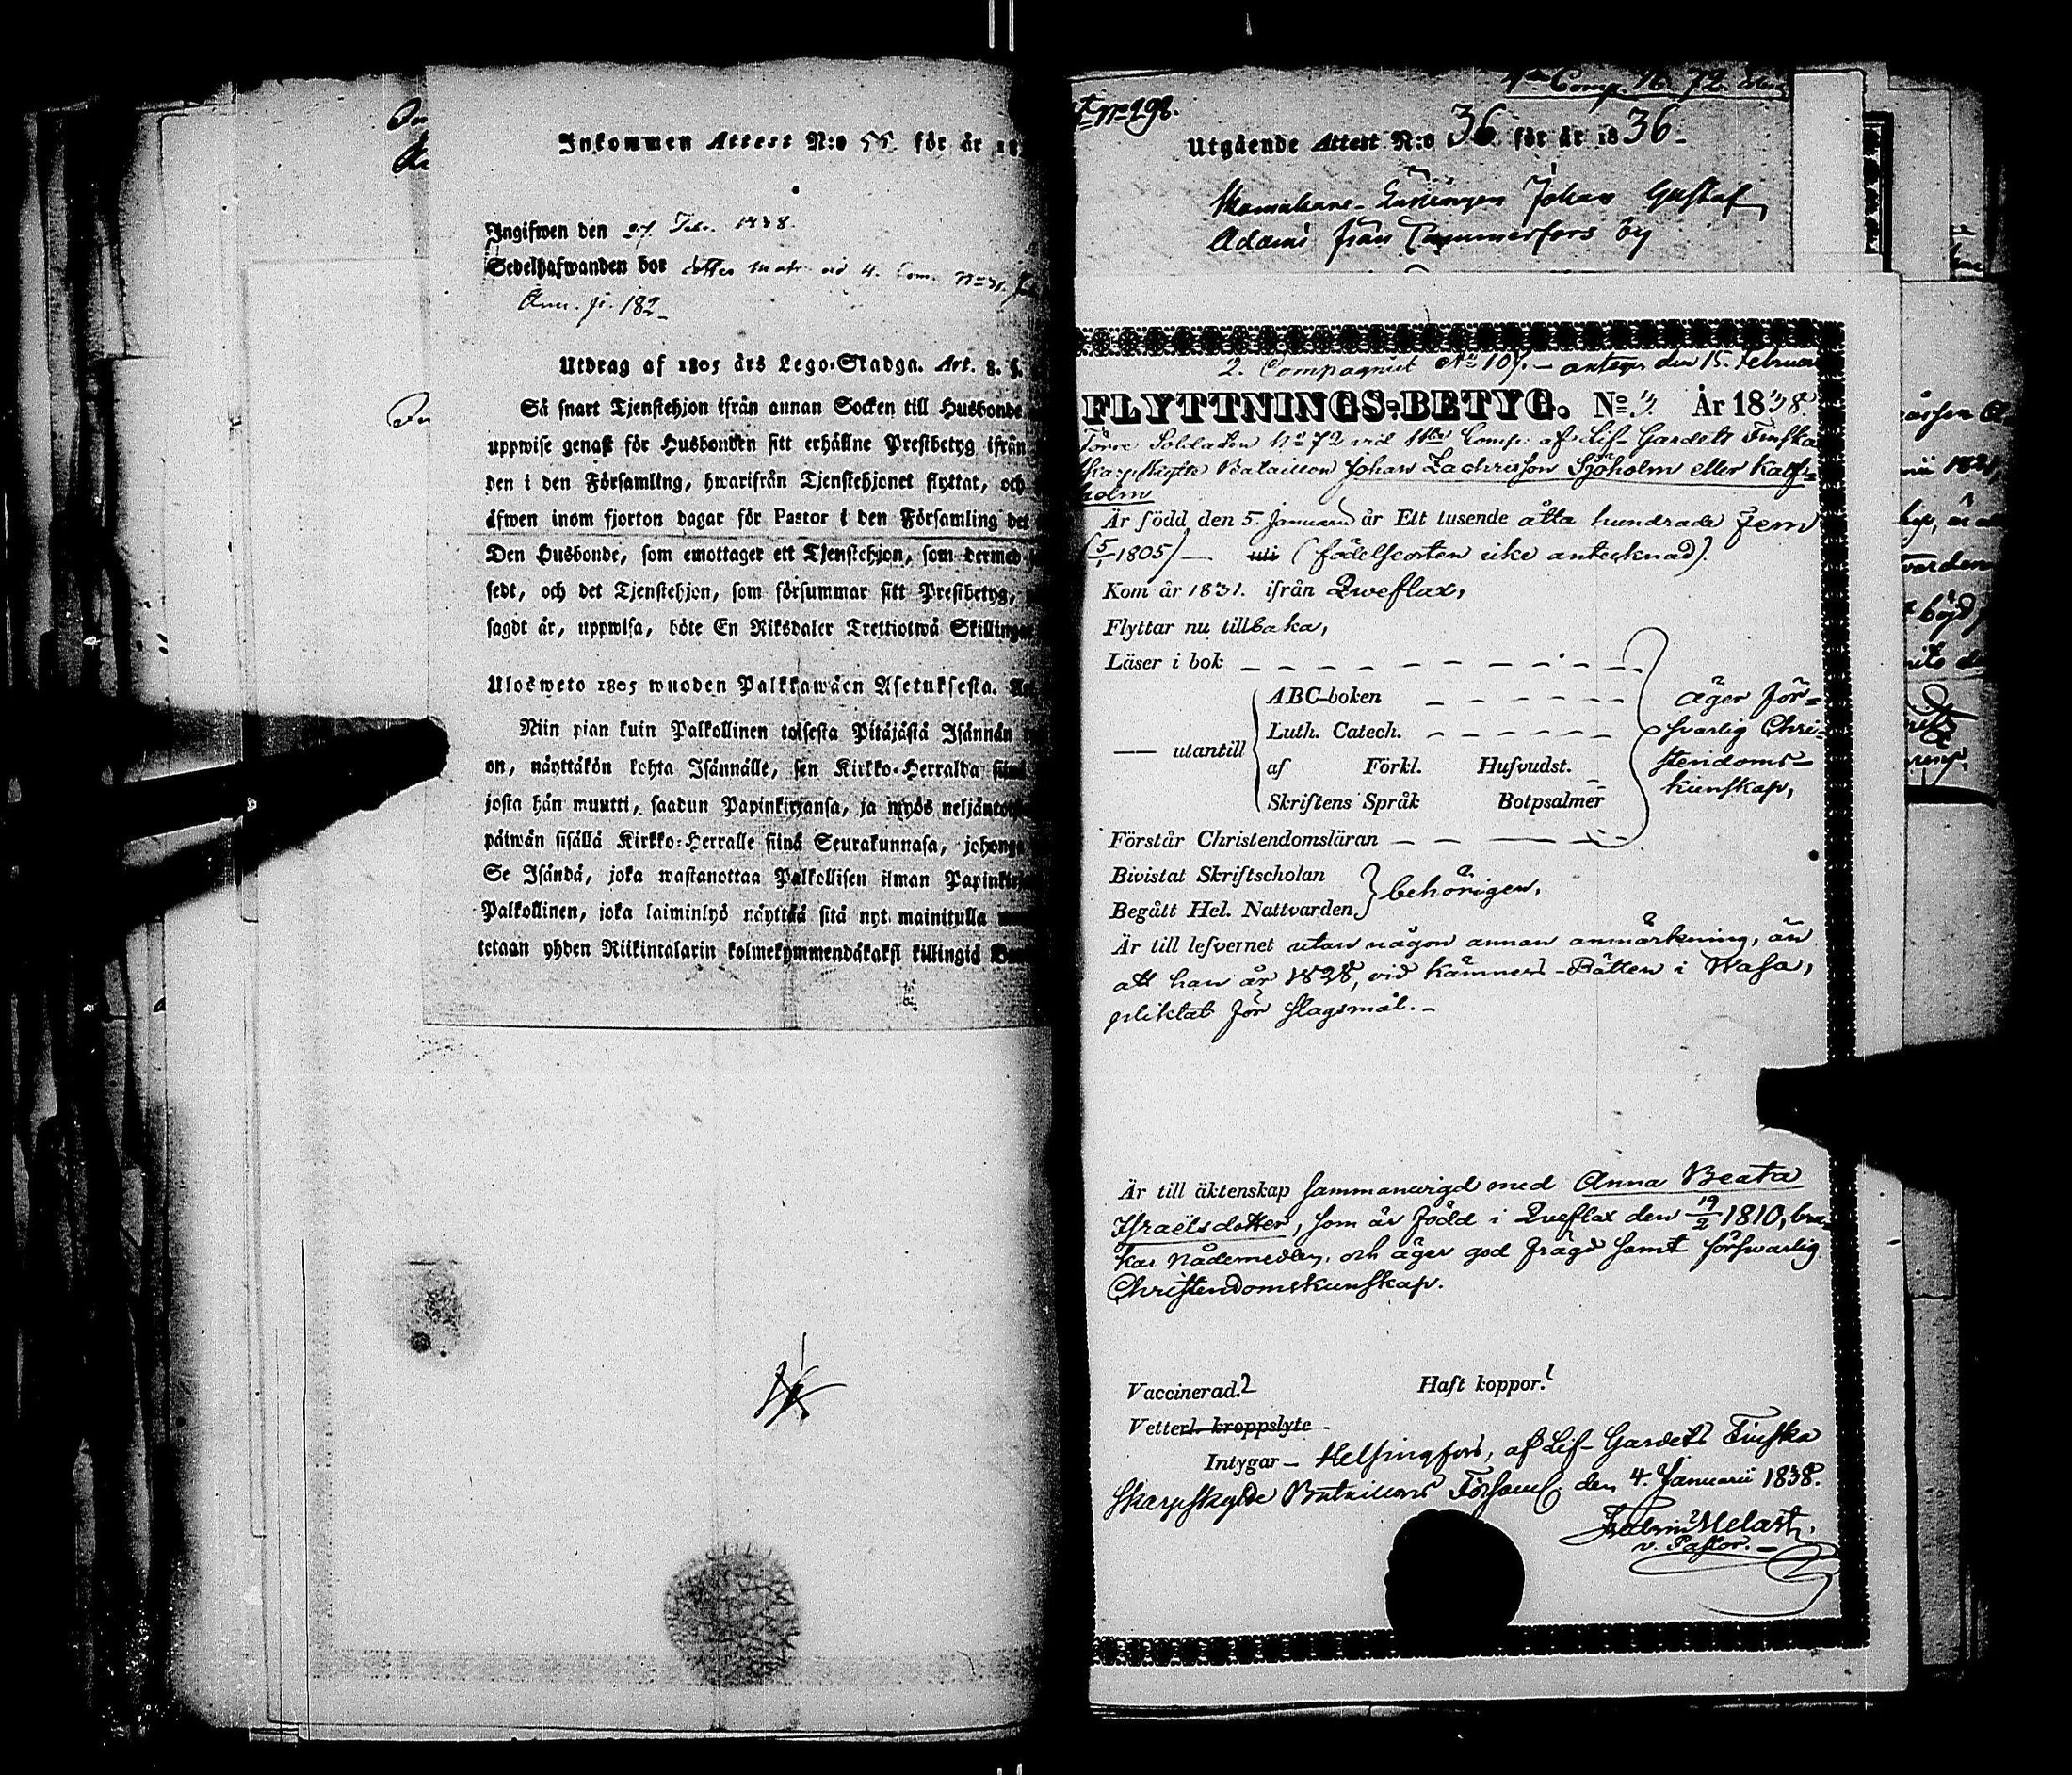 Inkommen Attest N:o 55 för år 18
Ingifwen den 27. Febr. 1838.
Sedelhafwanden bor
182
Utdrag af 1805 års Lego-Stadga. Art. 8. §.
Så snart Tjenstehjon ifrån annan Socken till Husbonde
uppwise genast för Husbonden sitt erhållne Prestbetyg ifrån
den i den Församling, hwarifrån Tjenstehjonet flyttat, och
äfwen inom fjorton dagar för Pastor i den Församling det
Den Husbonde, som emottager ett Tjenstehjon, som dermed
sedt, och det Tjenstehjon, som försummar sitt Prestbetyg,
sagdt är, uppwisa, böte En Riksdaler Trettiotwå Skillingar
Ulosweto 1805 wuoden Palkkawäen Asetuksesta.
Niin pian kuin Palkollinen toisesta Pitäjästä Isännän
on, näyttäkön kohta Isännälle, sen Kirkko-Herralda siinä
josta hän muutti, saadun Papinkirjansa, ja myös neljäntoista
päiwän sisällä Kirkko-Herralle siinä Seurakunnasa, johonga
Se Isändä, joka wastanottaa Palkollisen ilman Papinkirja
Palkollinen, joka laiminlyö näyttää sitä nyt mainitulla
tetaan yhden Riikintalarin kolmekymmendäkaksi killingiä
N:o 298.
Comp. N:o 72.
Utgående Attest N:o 36 för år 1836-
Johan Gustaf
Adams från Tammerfors by
2. Compagniet No 107. - antogs den 15. Februarii
FLYTTNINGS-BETYG. No 3 År 1838
Förre Soldaten No 72 vid 1sta Comp: af Lif-Gardets Finska
Skarpskytte Bataillon Johan Zachrisson Sjöholm eller Kalf=
holm
Är född den 5. Januarii år Ett tusende åtta hundrade fem
(5/1 1805) — uti (födelseorten icke antecknad).
Kom år 1831. ifrån Qweflax,
Flyttar nu tillbaka,
Läser i bok
ABC-boken äger för=
— utantill Luth. Catech. svarlig Chri-
af Förkl. Husvudst. stendoms-
Skriftens Språk Botpsalmer kunskap,
Förstår Christendomsläran
Bivistat Skriftscholan
behörigen,
Begått Hel. Nattvarden
Är till lefvernet utan någon annan anmärkning, än
att han år 1828, vid Kämners-Rätten i Wasa,
pliktat för slagsmål.-
Är till äktenskap sammanvigd med Anna Beata
Israëlsdotter, som är född i Qveflax den 19/2 1810, bru-
kar nådemedlen, och äger god frägd samt försvarlig
Christendomskunskap.
Vaccinerad.? Haft koppor.!
Vetterl. kroppslyte -
Intygar - Helsingfors, af Lif-Gardets Finska
Skarpskytte Bataillons Församl. den 4. Januarii 1838.
Melart.
v. Pastor.-